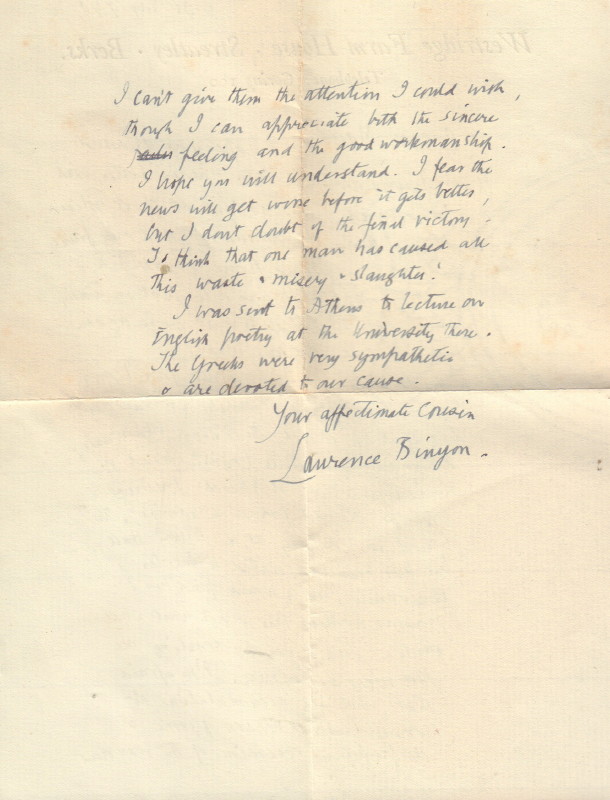 I can't give them the attention I could wish,
though I can appreciate both the sincere
feeling and the good workmanship.
I hope you will understand. I fear the
news will get worse before it gets better,
but I dont doubt of the final victory.
To think that one man has caused all
this waste & misery & slaughter!
I was sent to Athens to lecture on
English poetry at the University there.
The Greeks were very sympathetic
& are devoted to our cause.
Your affectionate Cousin
Laurence Binyon.
Westridge Farm House · Streatley · Berks.